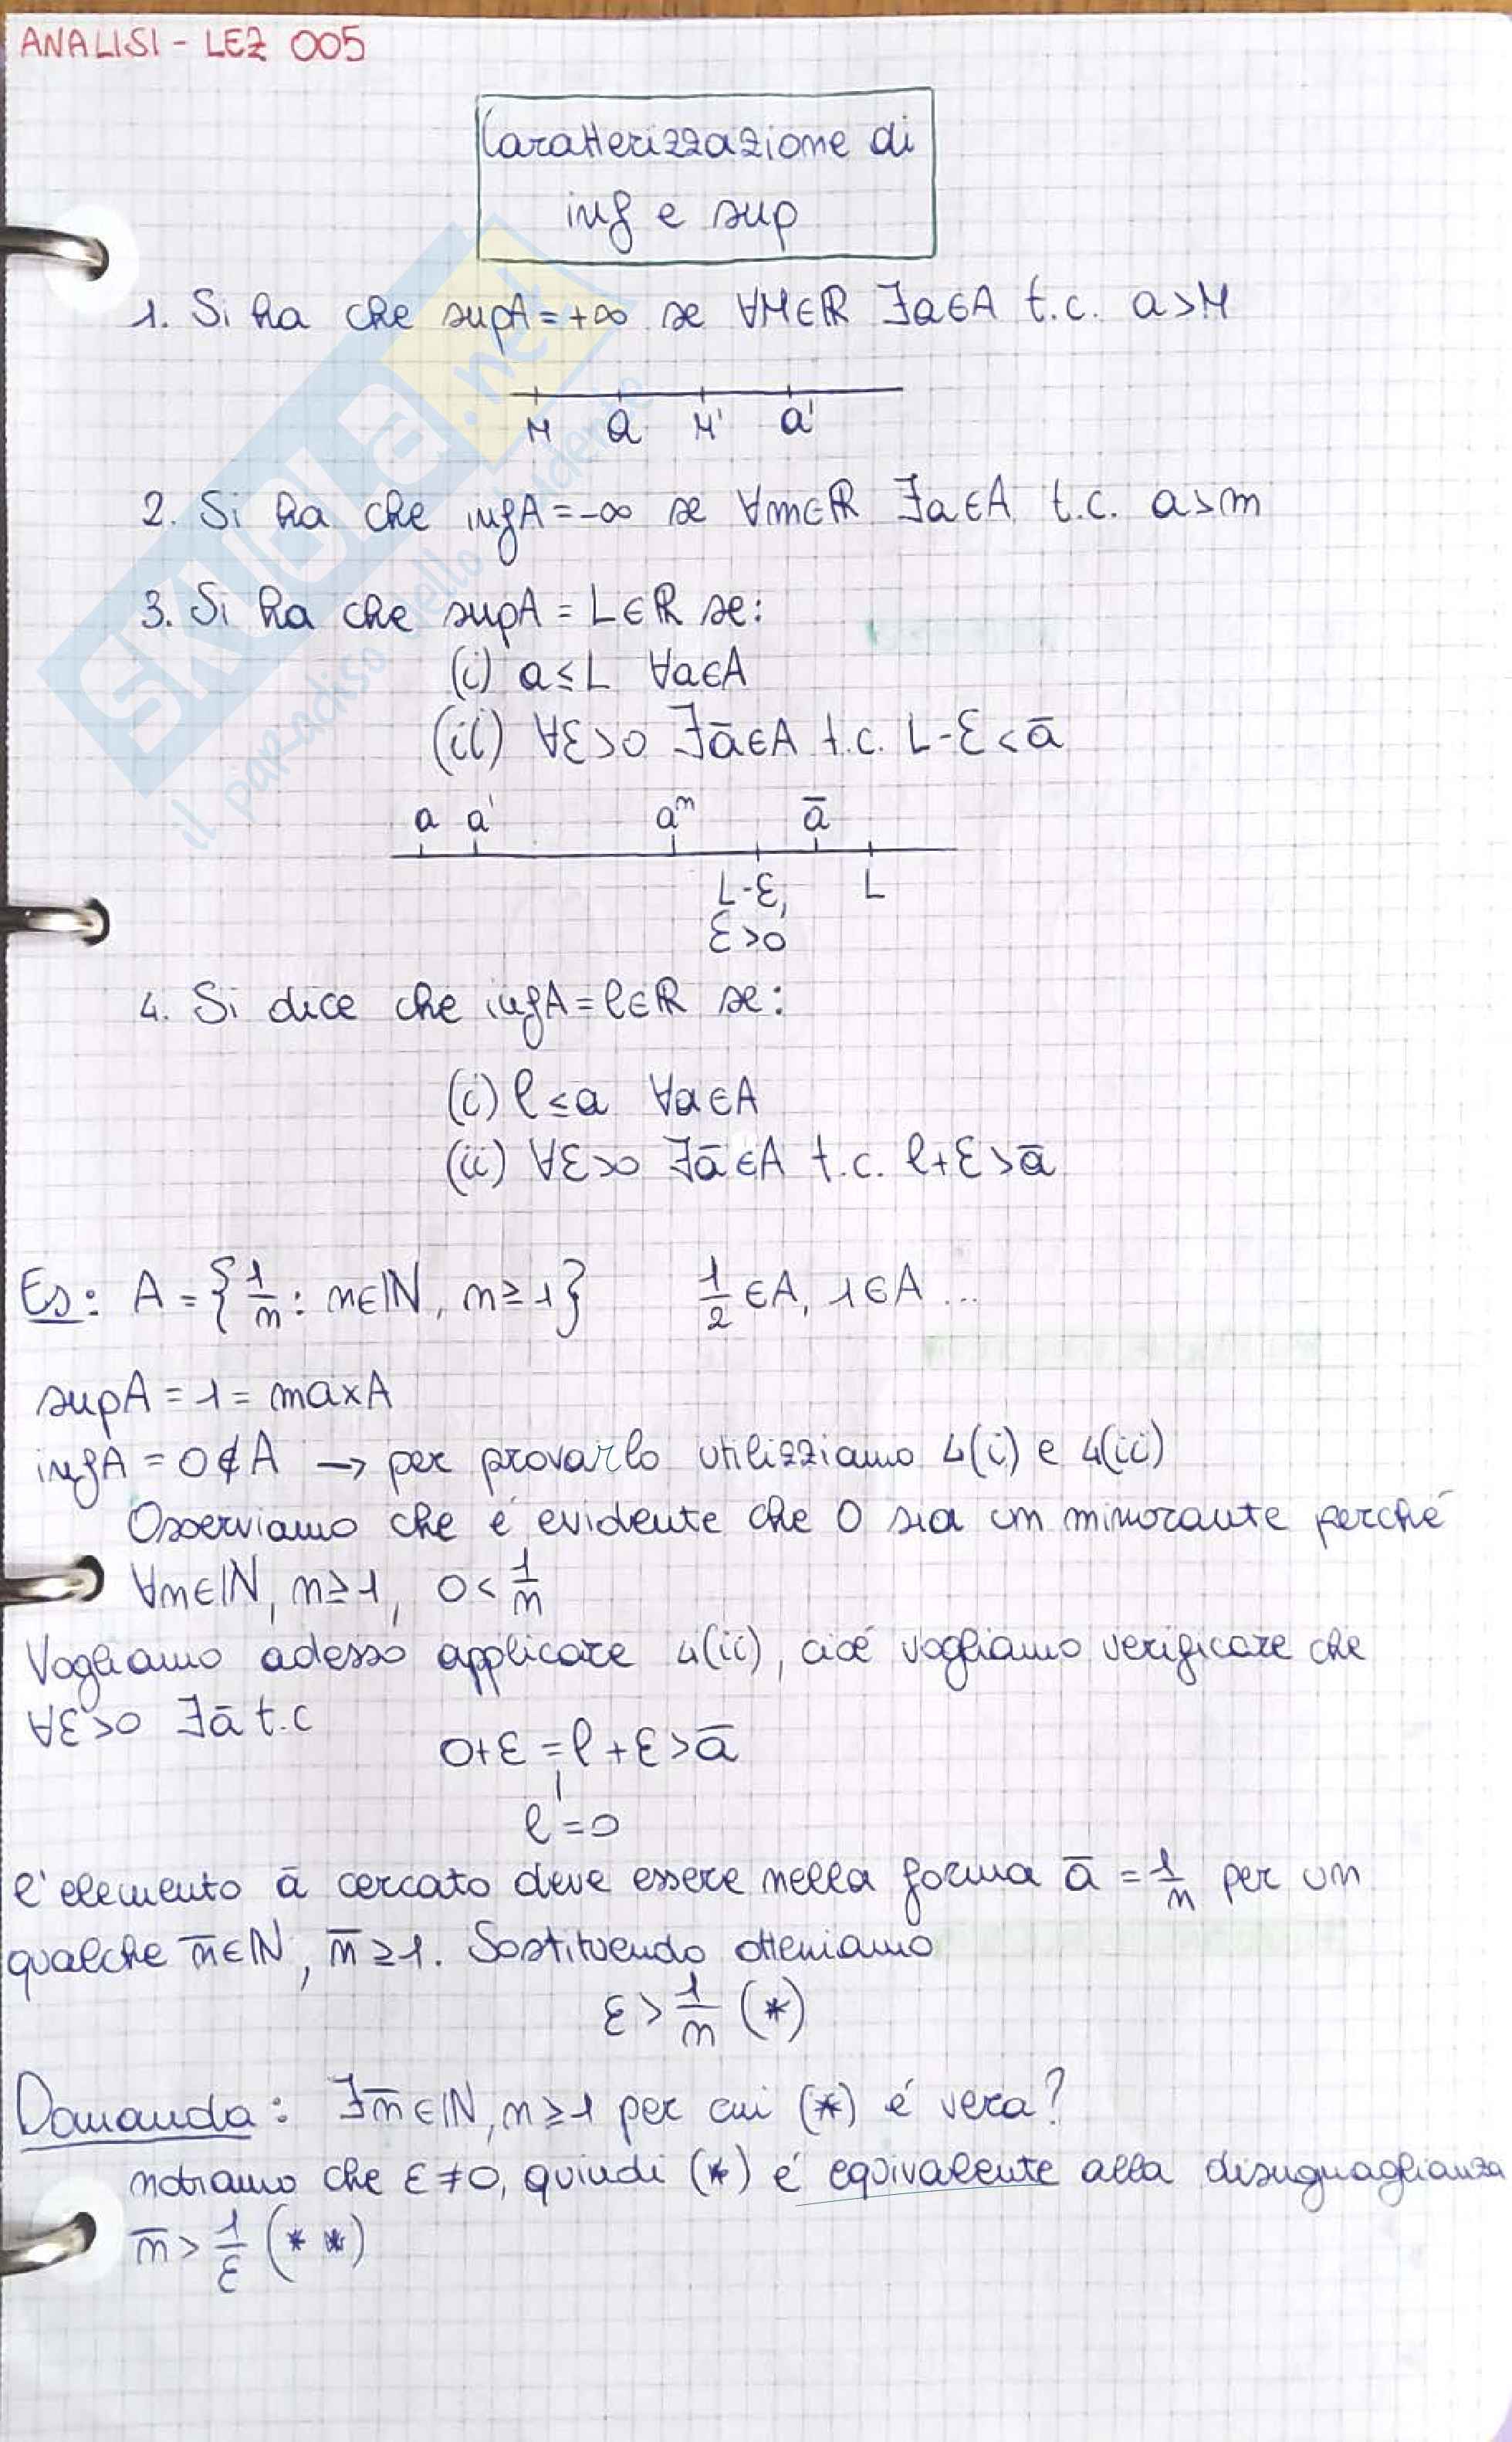 ANALISI - LEZ 005
Caratterizzazione di
inf e sup
1. Si ha che supA = +∞ se ∀M∈ℝ ∃a∈A t.c. a>M
M a M' a'
2. Si ha che infA = -∞ se ∀m∈ℝ ∃a∈A t.c. a>m
3. Si ha che supA = L∈ℝ se:
(i) a≤L ∀a∈A
(ii) ∀ε>0 ∃ā∈A t.c. L-ε<ā
a a' aᵐ ā
L-ε, L
ε>0
4. Si dice che infA = l∈ℝ se:
(i) l≤a ∀a∈A
(ii) ∀ε>0 ∃ā∈A t.c. l+ε>ā
Es: A = {1/n : n∈ℕ, n≥1} 1/2 ∈A, 1∈A ...
supA = 1 = maxA
infA = 0∉A → per provarlo utilizziamo 4(i) e 4(ii)
Osserviamo che é evidente che 0 sia un minorante perché
∀n∈ℕ, n≥1, 0<1/n
Vogliamo adesso applicare 4(ii), cioé vogliamo verificare che
∀ε>0 ∃ā t.c
0+ε = l+ε>ā
l=0
l'elemento ā cercato deve essere nella forma ā = 1/n per un
qualche n̄∈ℕ, n̄≥1. Sostituendo otteniamo
ε > 1/n (*)
Domanda: ∃n̄∈ℕ, n≥1 per cui (*) é vera?
notiamo che ε≠0, quindi (*) é equivalente alla disuguaglianza
n̄ > 1/ε (**)
SKUOLA.net
il paradiso dello studente